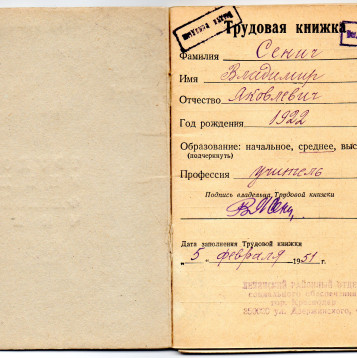 Трудовая книжка
Фамилия Сенич
Имя Владимир
Отчество Яковлевич
Год рождения 1922
Образование: начальное, среднее, выс
(подчеркнуть)
Профессия учитель
Подпись владельца Трудовой книжки
Дата заполнения Трудовой книжки
„5 “ февраля 1951 г.
социального обеспечения
ул. Дзержинского,